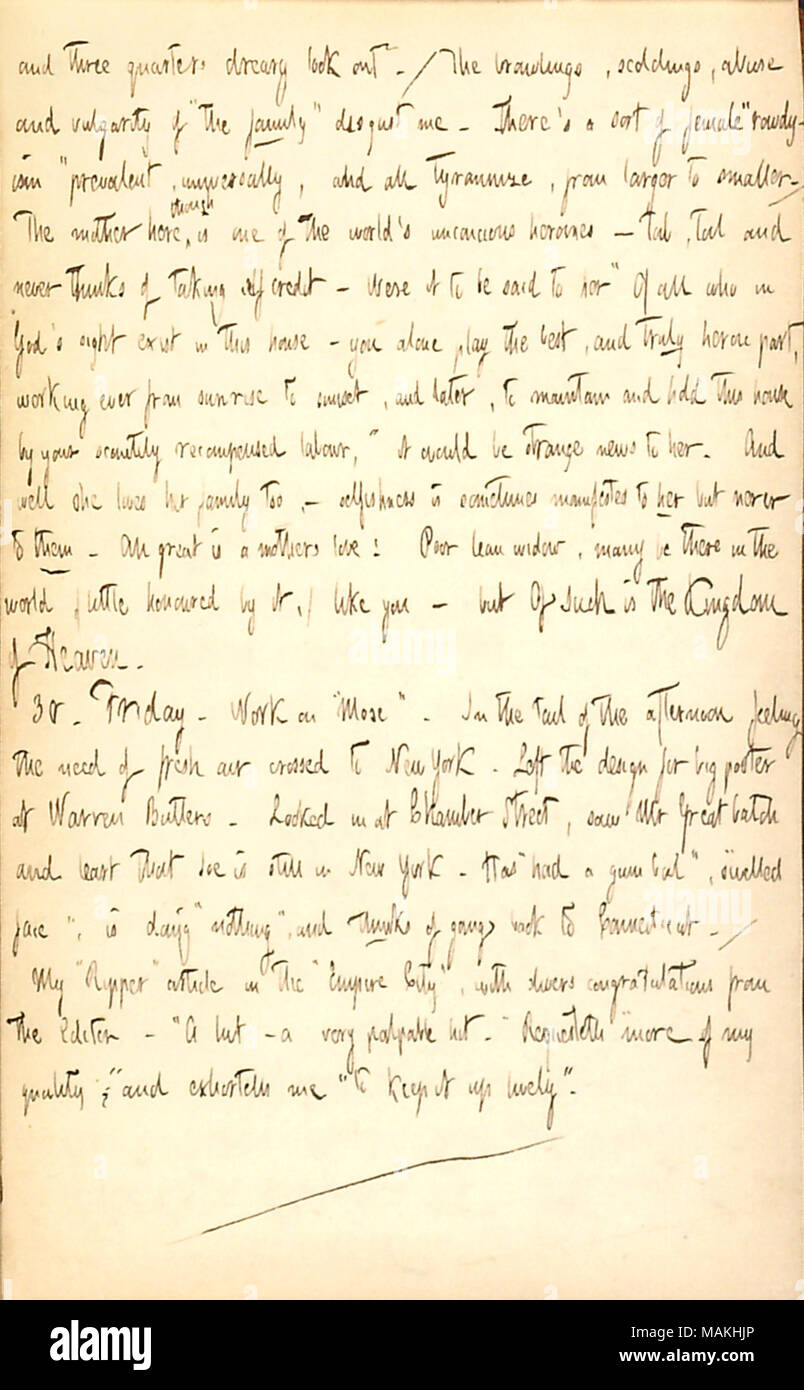 and three quarters dreary look out - / The brawlings, scoldings, abuse
and vulgarity of "the family" disgust me - There's a sort of female "rowdy-
ism" prevalent, universally, and all tyrannize, from larger to smaller -/
The mother here, though is one of the world's unconcious heroines - toil, toil and
never thinks of taking self credit - Were it to be said to her "Of all who in
God's sight exist in this house - you alone play the best, and truly heroic part,
working ever from sunrise to sunset, and later, to maintain and hold this house
by your scantily recompensed labour," it would be strange news to her. And
well she loves her family too, - selfishness is sometimes manifested to her but never
to them - Ah great is a mothers love! Poor lean widow, many be there in the
world, (little honoured by it,) like you - but Of such is the Kingdom
of Heaven.
30. Friday - Work on "Mose". In the tail of the afternoon feeling
the need of fresh air crossed to New York. Left the design for big poster
at Warren Butlers - Looked in at Chamber Street, saw Mr Greatbatch
and learnt that Joe is still in New York - Has "had a gum boil", "swelled
face", is doing "nothing", and thinks of going back to Connecticut. /
My "Ripper" article in the "Empire City", with divers congratulations from
the Editor - "A hit - a very palpable hit." Requesteth "more of my
quality;" and exhorteth me "to keep it up lively".
alamy
Image ID: MAKHJP
www.alamy.com